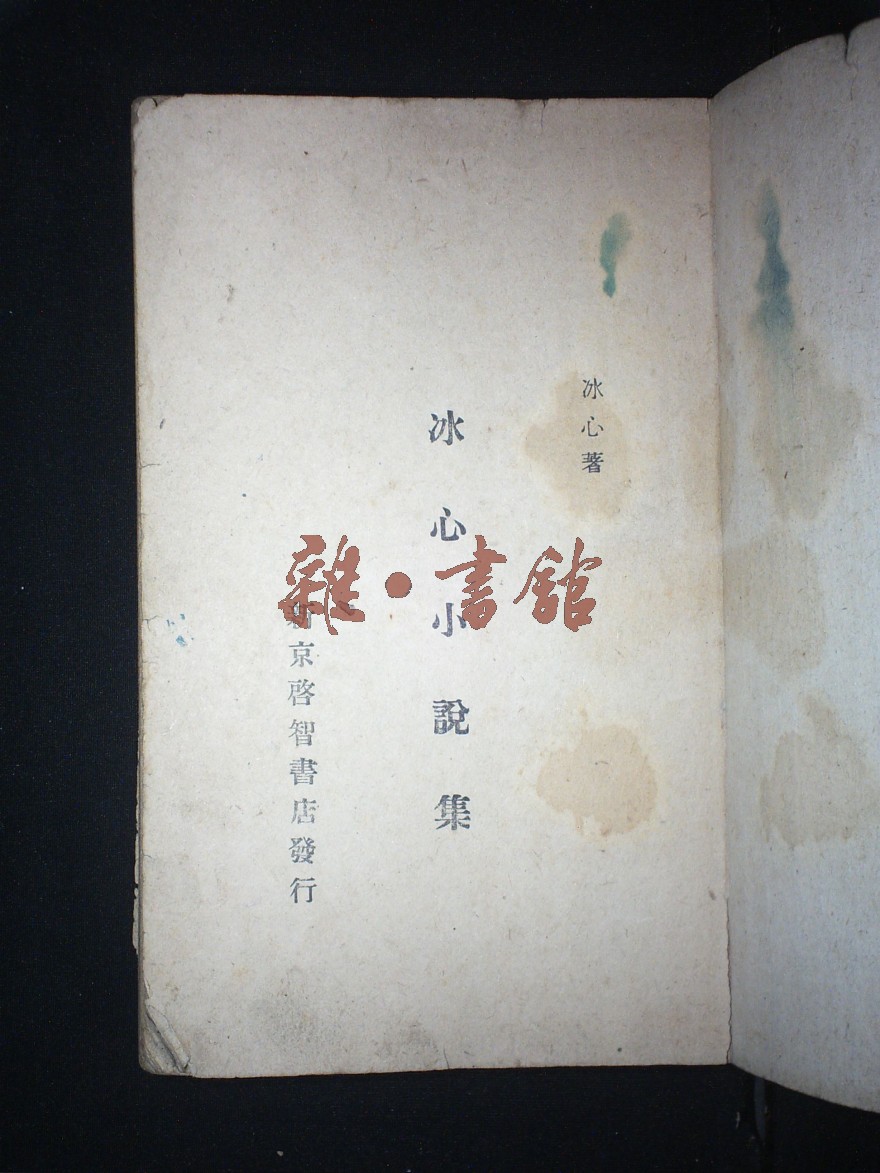 冰心著
冰心小說集
新京啓智書店發行
雜·書館